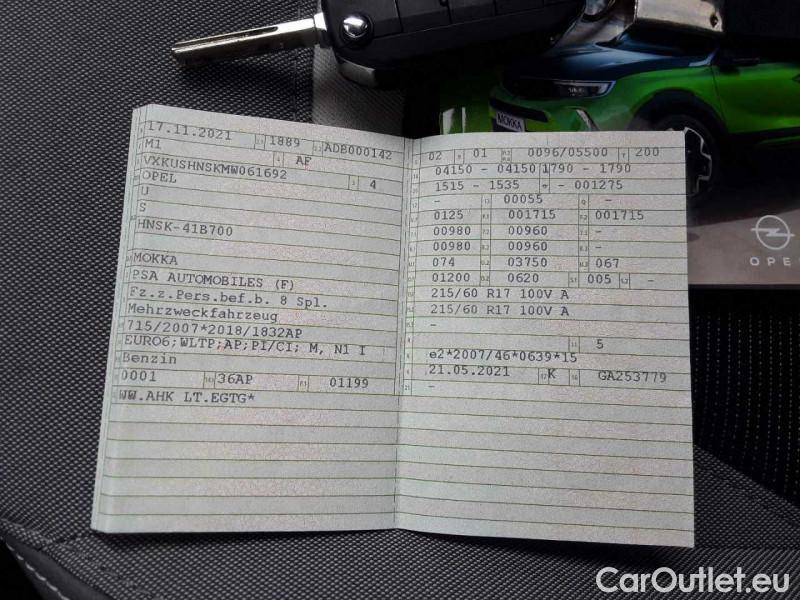 MOKKA
OPEL
17.11.2021 1889 ADB000142
M1 AF
VXKUSHNSKMW061692 4
OPEL
U
S
HNSK-41B700
MOKKA
PSA AUTOMOBILES (F)
Fz.z.Pers.bef.b. 8 Spl.
Mehrzweckfahrzeug
715/2007*2018/1832AP
EURO6;WLTP;AP;PI/CI; M, N1 I
Benzin
0001 36AP 01199
WW.AHK LT.EGTG*
02 01 0096/05500 200
04150 - 04150 1790 - 1790
1515 - 1535 - 001275
- 00055 -
0125 001715 001715
00980 00960 -
00980 00960 -
074 03750 067
01200 0620 005 -
215/60 R17 100V A
215/60 R17 100V A
-
5
e2*2007/46*0639*15
21.05.2021 K GA253779
-
CarOutlet.eu